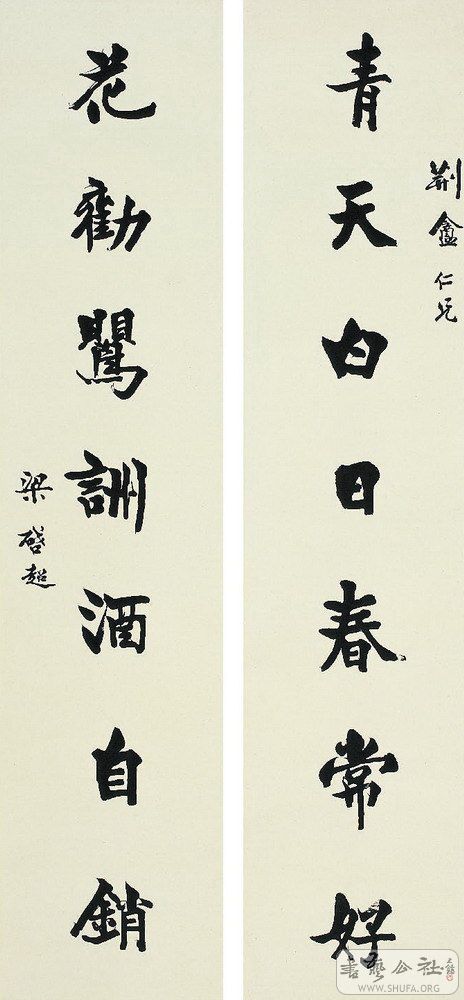 荊盦仁兄
青天白日春常好
花勸鸎詶酒自銷
梁啓超
書藝公社
WWW.SHUFA.ORG